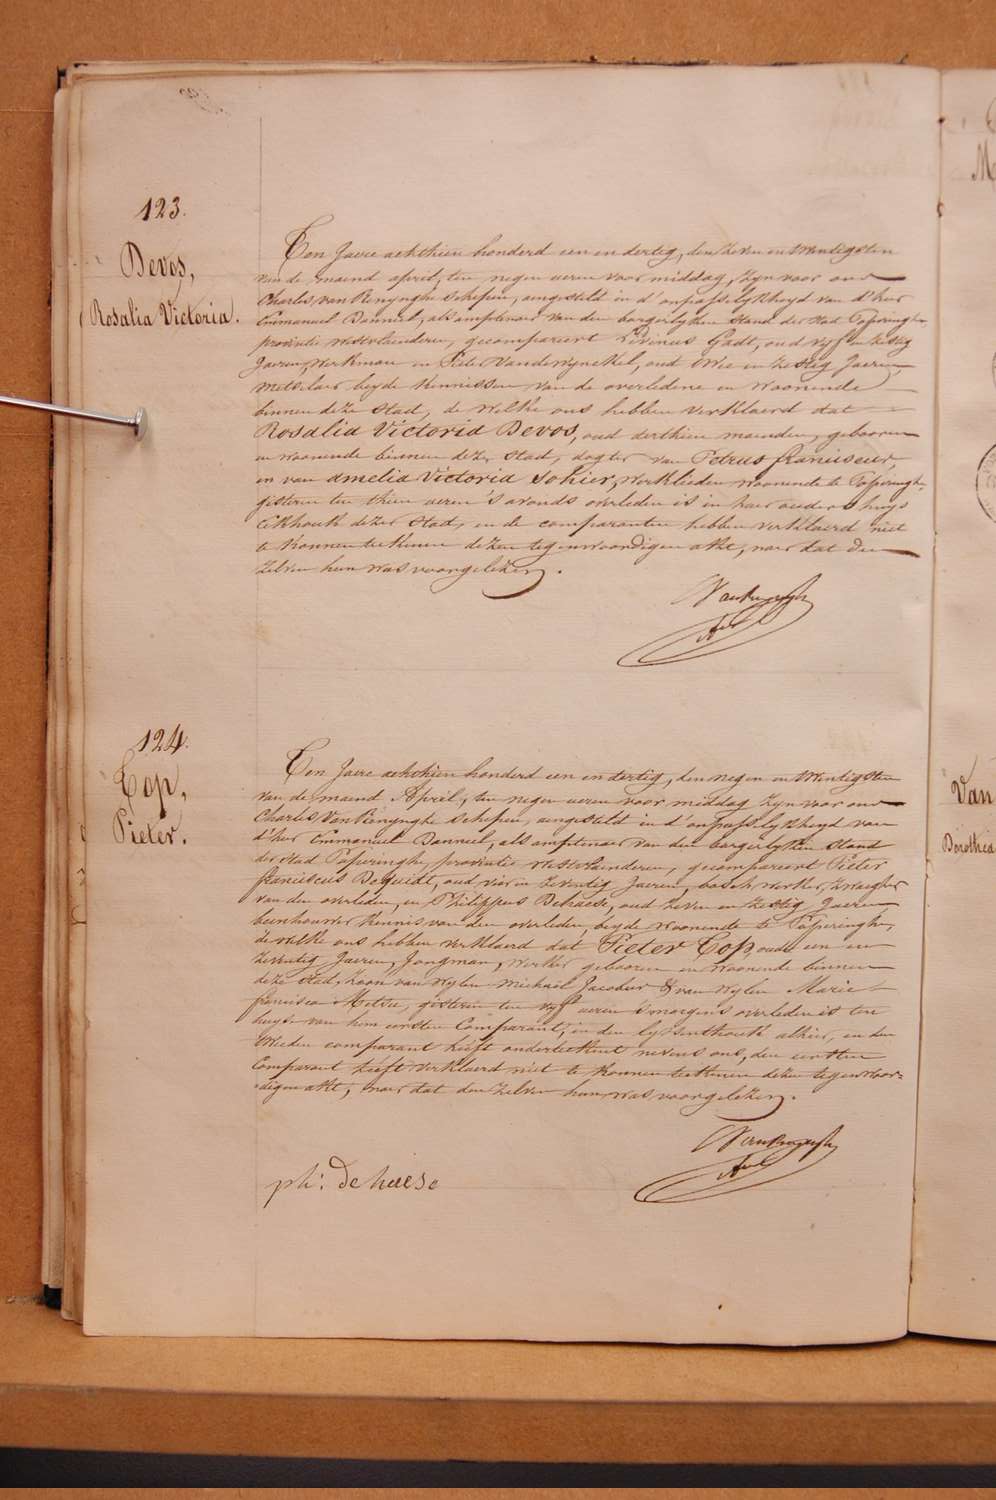 123.
Devos,
Rosalia Victoria.
Ten Jaere achthien honderd een en dertig, den zeven en twentigsten
van de maend april, ten negen ueren voormiddag, zyn voor ons
Charles van Renynghe schepen, aengesteld in d'onpasselykheyd van d'heer
Emmanuel Danneel, als amptenaer van den borgerlyken stand der stad Poperinghe,
provintie westvlaenderen, gecompareert Livinus Gadt, oud vyf en zestig
Jaeren, werkman en Pieter Vandewynckel, oud twee en zestig Jaeren,
metselaer beyde kennissen van de overledene en woonende
binnen deze stad, de welke ons hebben verklaerd dat
Rosalia Victoria Devos, oud derthien maenden, gebooren
en woonende binnen deze stad, dogter van Petrus franciscus,
en van Amelia Victoria Sohier, werklieden woonende te Poperinghe,
gisteren ten thien ueren 's avonds overleden is in haer ouders huys
Eekhouk dezer stad, en de comparanten hebben verklaerd niet
te konnen teekenen dezen tegenwoordigen akte, naer dat den
zelven hun was voorgelezen.
124.
Cop,
Pieter.
Ten Jaere achthien honderd een en dertig, den negen en twentigsten
van de maend April, ten negen ueren voormiddag zyn voor ons
Charles Van Renynghe schepen, aengesteld in d'onpasselykheyd van
d'heer Emmanuel Danneel, als amptenaer van den borgerlyken stand
der stad Poperinghe, provintie westvlaenderen, gecompareert Pieter
franciscus Dequidt, oud vier en zeventig Jaeren, bosch werker, zwaeger
van den overleden, en Philippus Dehaese, oud zeven en zestig Jaeren
beenhouwer kennis van den overleden, beyde woonende te Poperinghe,
de welke ons hebben verklaerd dat Pieter Cop, oud een en
zeventig Jaeren, Jongman, werker gebooren en woonende binnen
deze stad, zoon van wylen Michaël Jacobus & van wylen Marie
francisca Metsu, gisteren ten vyf ueren smorgens overleden is ten
huyse van hem eersten Comparant, in den lyssenthouk alhier, en den
tweeden comparant heeft onderteekent nevens ons, den eersten
Comparant heeft verklaerd niet te konnen teekenen dezen tegenwoor-
digen akte, naer dat den zelven hun was voorgelezen.
ph: de haese
Van
Dorothea